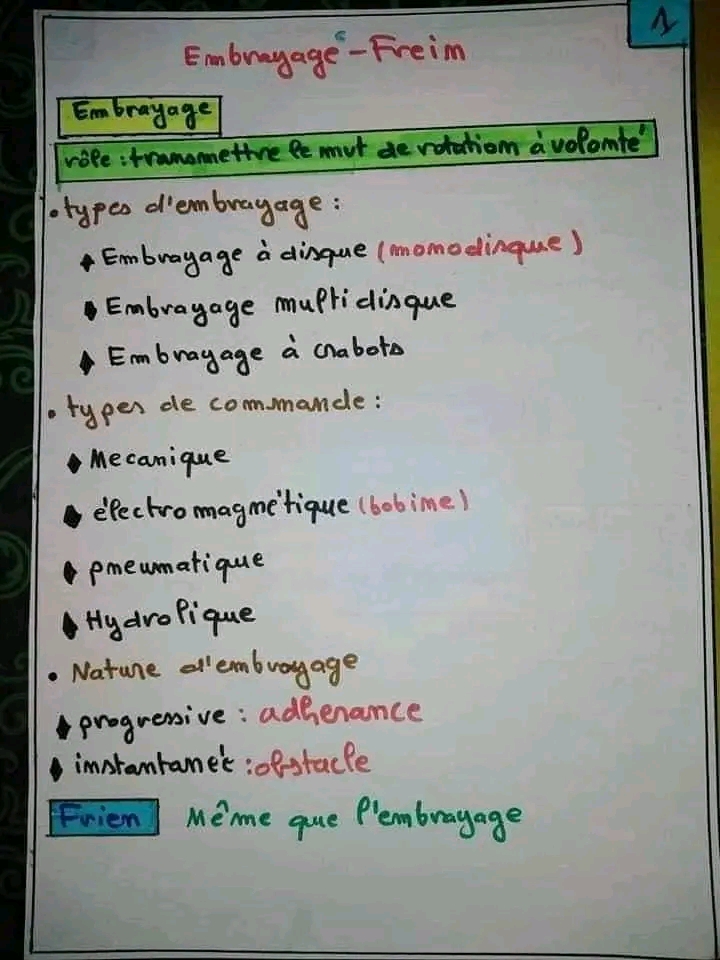 1
Embrayage - Freim
Embrayage
rôle : transmettre le mvt de rotation à volomté
• types d'embrayage :
♦ Embrayage à disque (momodisque)
♦ Embrayage multidisque
♦ Embrayage à crabots
• types de commande :
♦ Mecanique
♦ électromagmétique (bobime)
♦ pmeumatique
♦ Hydrolique
• Nature d'embrayage
♦ progressive : adherance
♦ imstantaneé : obstacle
Frien Même que l'embrayage